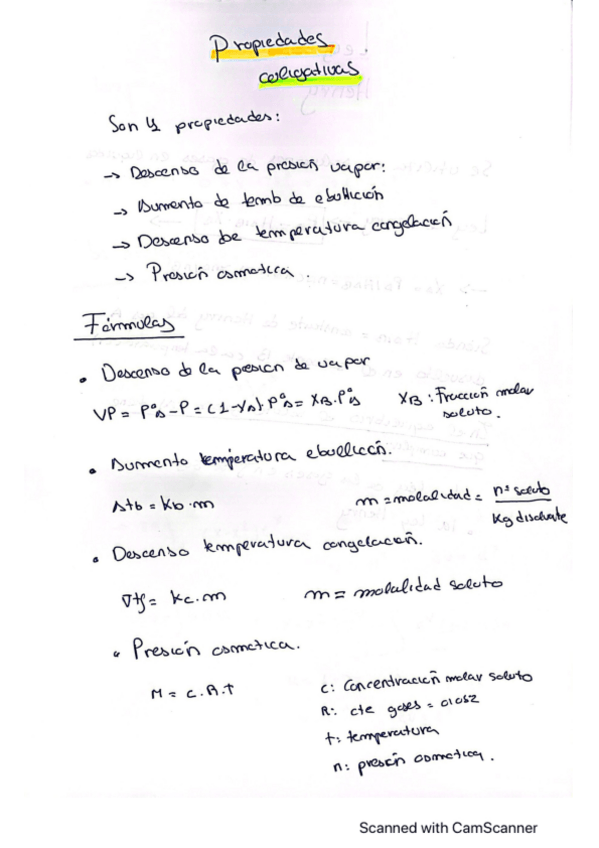 Propiedades
coligativas
Son 4 propiedades:
→ Descenso de la presión vapor:
→ Aumento de temb de ebullición
→ Descenso de temperatura congelación
→ Presión osmotica.
Fórmulas
• Descenso de la presion de vapor
VP = P°A - P = (1-XA) P°A = XB.P°A XB: Fracción molar
soluto.
• Aumento temperatura ebullición.
Δtb = Kb.m m = molalidad = nº soluto
Kg disolvente
• Descenso temperatura congelación.
∇tf = Kc.m m = molalidad soluto
• Presión osmotica.
M = C.R.t
C: Concentración molar soluto
R: cte gases = 0'082
t: temperatura
n: presión osmotica.
Scanned with CamScanner